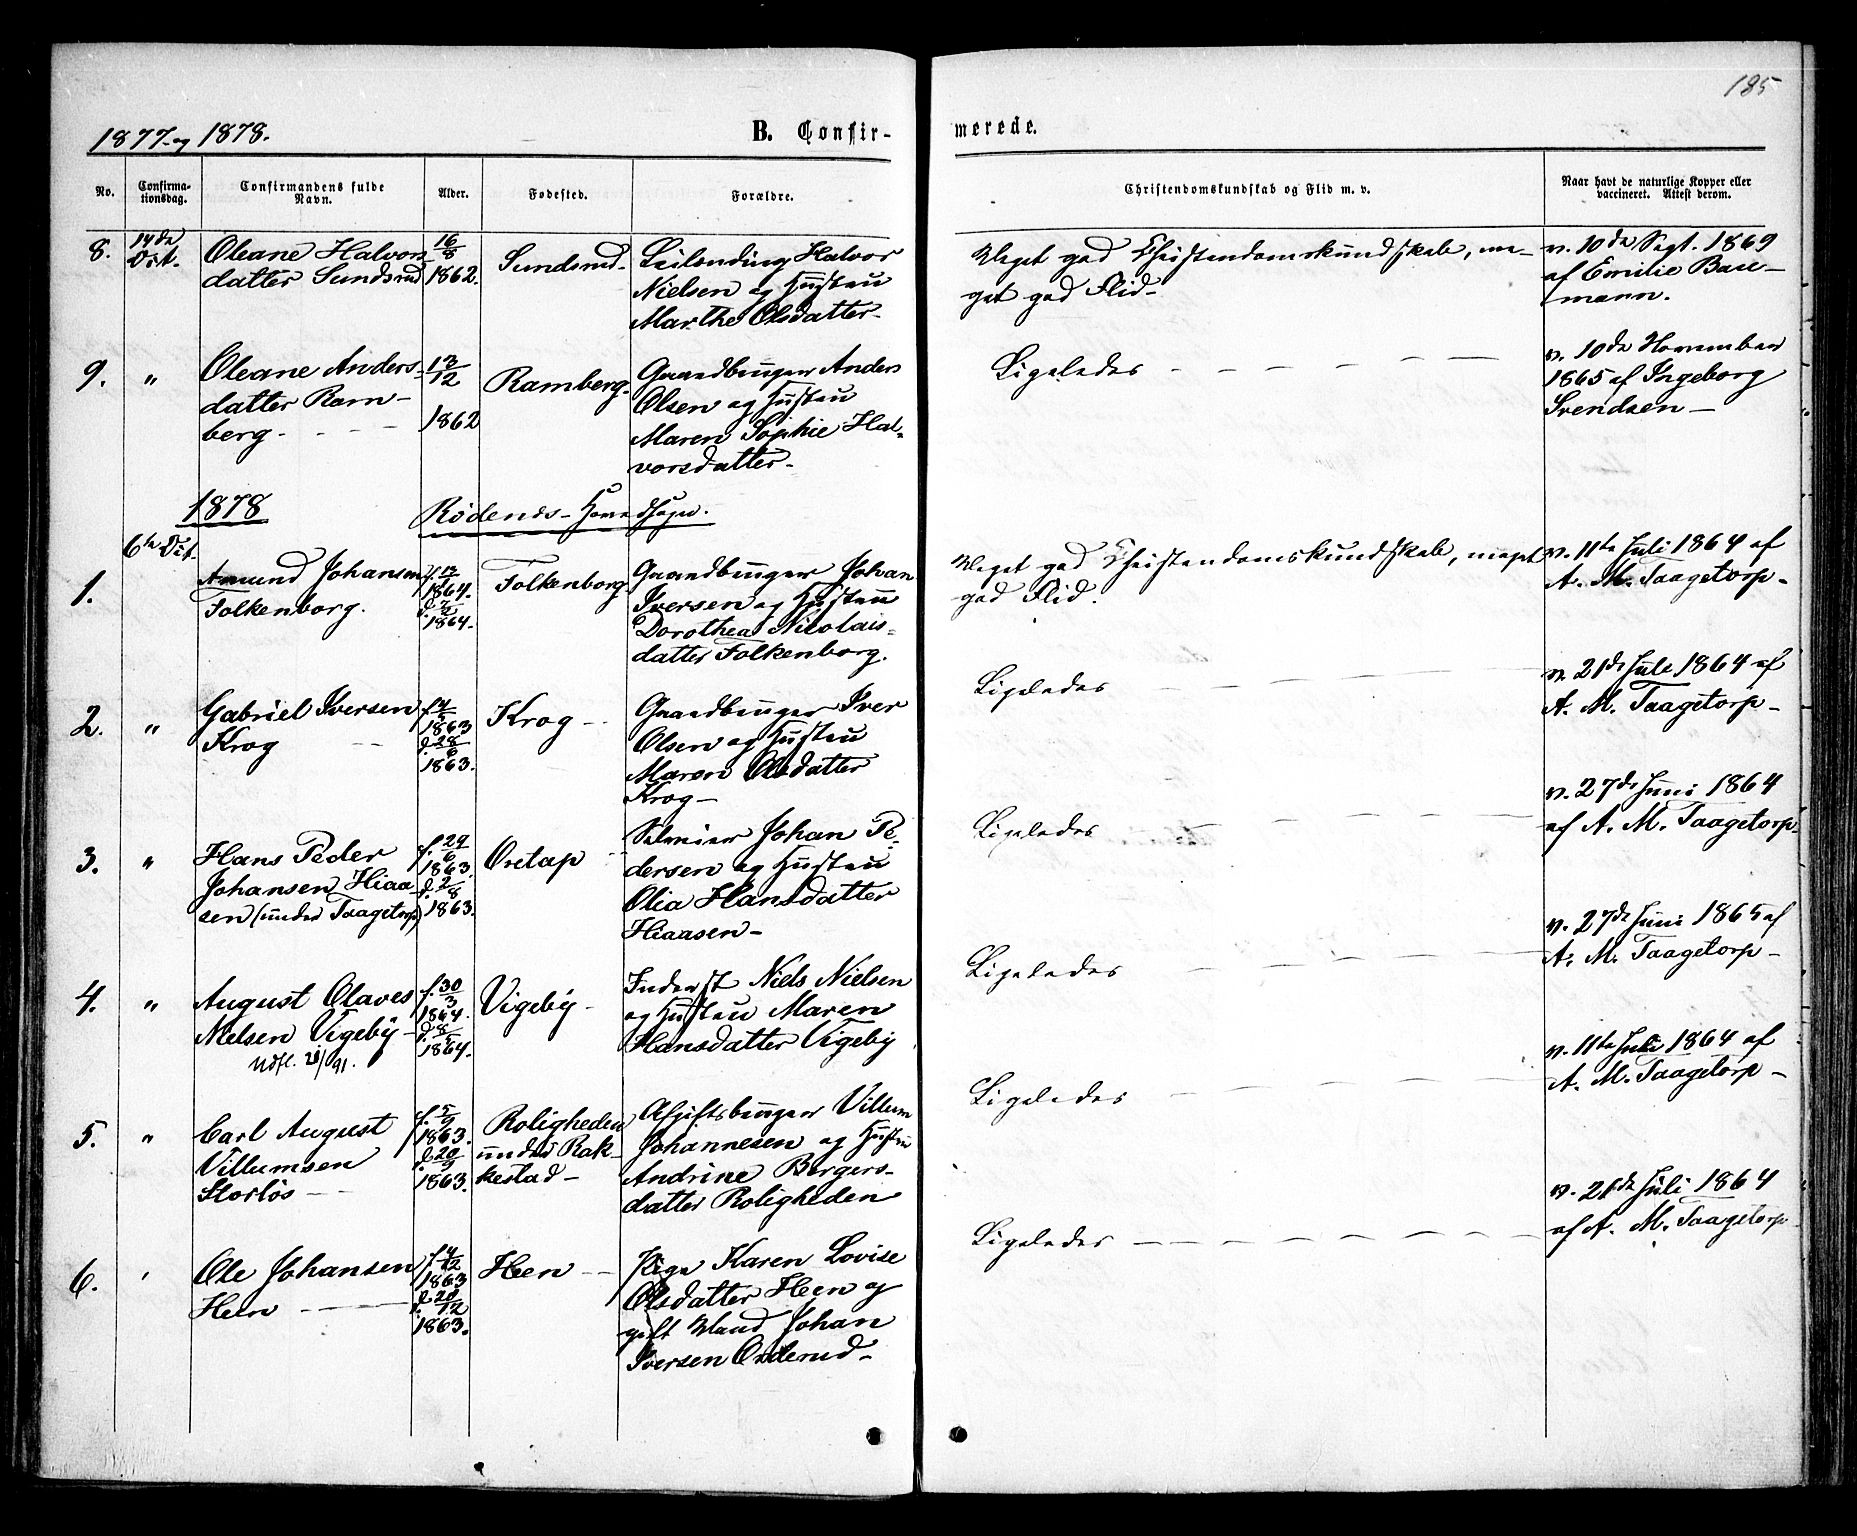 185
1877 og 1878.
B. Confirmerede.
No.
Confirmationsdag.
Confirmandens fulde Navn.
Alder.
Fødested.
Forældre.
Christendomskundskab og Flid m. v.
Naar havt de naturlige Kopper eller
vaccineret. Attest derom.
8. 14de Oct. Oleane Halvors- 16/8 1862. Sundsrud
datter Sundsrud
Leilending Halvor
Nielsen og Hustru
Marthe Olsdatter
Meget god Christendomskundskab, me-
get god Flid
v. 10de Sept. 1869
af Emilie Bau-
mann.
9. " Oleane Anders- 13/12 1862 Ramberg
datter Ram-
berg
Gaardbruger Anders
Olsen og Hustru
Maren Sophie Hal-
vorsdatter
Ligeledes
v. 10de November
1865 af Ingeborg
Svendsen
1878 Rødenes Hovedsogn.
6te Oct.
1. Amund Johansen
Folkenborg.
1864.
1864.
Folkenborg
Gaardbruger Johan
Iversen og Hustru
Dorothea Nicolais-
datter Folkenborg.
Meget god Christendomskundskab, meget
god Flid.
v. 11te Juli 1864 af
A. M. Taagetorp
2. " Gabriel Iversen
Krog
1863
d. 28/6
1863.
Krog
Gaardbruger Iver
Olsen og Hustru
Maren Olsdatter
Krog
Ligeledes
v. 21de Juli 1864 af
A. M. Taagetorp
3. " Hans Peder
Johansen Hiaa
sen (under Taagetorp)
f. 29/6
1863.
d. 2/8
1863.
Oretap
Selveier Johan Pe-
dersen og Hustru
Olia Hansdatter
Hiaasen
Ligeledes
v. 27de Juni 1864
af A. M. Taagetorp
4. " August Olaves
Nielsen Vigeby
Udfl.
f. 30/3
1864.
1864.
Vigeby
Inderst Niels Nielsen
og Hustru Maren
Hansdatter Vigeby
Ligeledes
v. 27de Juni 1865 af
A. M. Taagetorp
5. " Carl August
Villumsen
Storløs
f. 5/9
1863.
d. 20/9
1863.
Roligheden
under Rak-
kestad
Afgiftsbruger Villum
Johannesen og Hustru
Andrine Bergers-
datter Roligheden
Ligeledes
v. 11te Juli 1864 af
A. M. Taagetorp
6. Ole Johansen
Heen
f. 4/12
1863
d. 20/12
1863.
Heen
Pige Karen Lovise
Olsdatter Heen og
gift Mand Johan
Iversen Orderud
Ligeledes
v. 21de Juli 1864
af A. M. Taagetorp